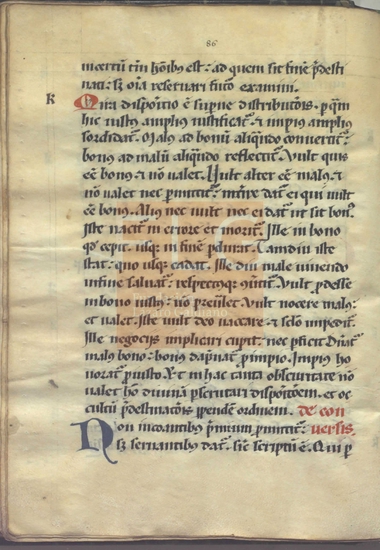 86
incertū tm̄ hoībus est: ad quem sit fine p̄desti
nati: sʒ oīa reseruari futo examini.
K
Qira dispositio ē supne distributōis. p quā
hic iustus amplius iustificat: et impius amplius
sordidat. Malus ad bonū aliqn̄do conuertit:
bonus ad malū aliqn̄do reflectit. Vult quis
eē bonus et nō valet. Vult alter eē malus et
nō valet nec pmittit: interire dat ei qui vult
eē bonus. Alius nec vult nec ei dat ut sit bonus.
Iste nascit in errore et morit. Ille in bono
qd cepit. usq in finē pdurat. Tamdiu iste
stat: quo usq cadat. Ille diu male uiuendo
infine saluat. respectusq
Vult pdesse
in bono iustus: nō preualet. Vult nocere malus:
et valet. Iste vult deo vaccare et sclo impedit.
Ille negociis implicari cupit: nec pficit. Dn̄at
malus bono: bonus dāpnat p impio. Impius ho
norat p iusto. Et in hac tanta obscuritate nō
valet hō diuinā pscrutari dispōitōem. et oc
cultū p̄destinatōis ppendē ordinem. de con
uersis.
Non incoantibus p̄mium pmittit:
sʒ seruantibus dat. sic scriptū ē. Qui p